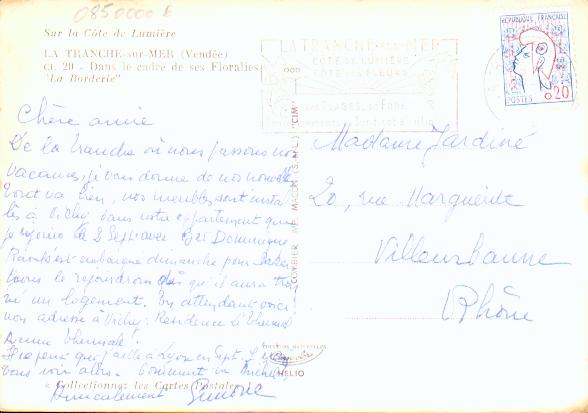 0850000
Sur la Côte de Lumière
LA TRANCHE-sur-MER (Vendée)
CI. 20 - Dans le cadre de ses Floralies
"La Borderie"
LA TRANCHE-sur-MER
CÔTE DE LUMIÈRE
CÔTE DES FLEURS
RÉPUBLIQUE FRANÇAISE
POSTES 0,20
Chère amie
De la Tranche où nous passons nos
vacances, je vous donne de nos nouvelles
Tout va bien, nos meubles sont instal
lés à Vichy dans notre appartement que
je rejoins le 2 Sept avec Dominique
s'est embarqué dimanche pour Dakar
le rejoindrons dès qu'il aura trou
vé un logement. En attendant voici
mon adresse à Vichy: Résidence le Thermal
Avenue Thermale
Il se peut que j'aille à Lyon en Sept.
vous voir alors. Comment va Michel
Amicalement Simone
« Collectionnez les Cartes Postales »
COMBIER IMP. MACON (S.-&-L.) "CIM"
HELIO
Madame Jardiné
20, rue Marguerite
Villeurbanne
Rhône